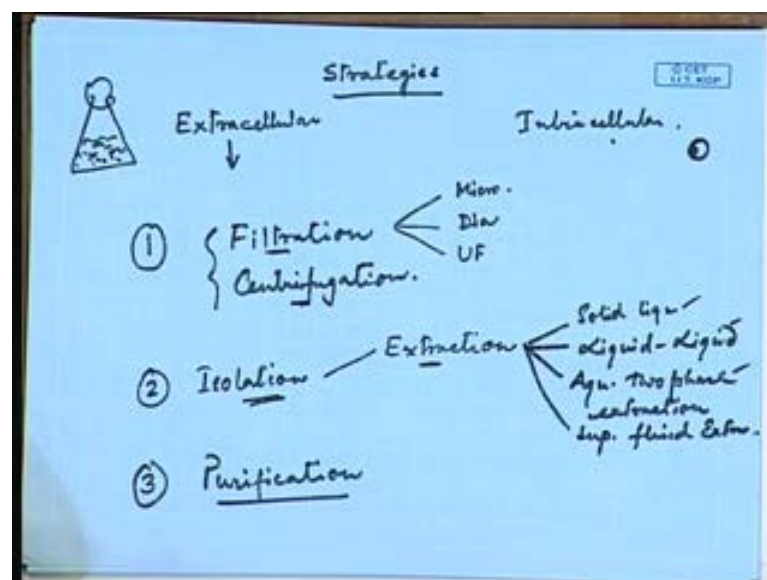 Strategies
© CET
I.I.T. KGP
Extracellular
Intracellular.
① { Filtration
Micro.
Dia
UF
Centrifugation.
② Isolation
Extraction
Solid liqu
Liquid-Liquid
Aqu. two phase
extraction
Sup. fluid Extn.
③ Purification